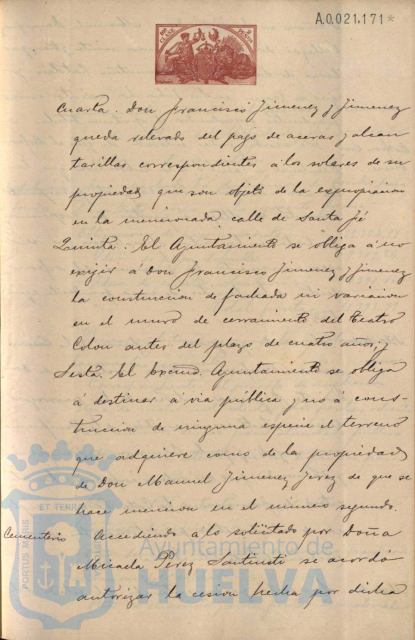 A.0.021.171*
Cuarta. Don Francisco Jimenez y Jimenez
queda relevado del pago de aceras y alcan
tarillas correspondientes á los solares de su
propiedad que son objeto de la expropiacion
en la mencionada calle de Santa Fé
Quinta. El Ayuntamiento se obliga á no
exijir á Don Francisco Jimenez y Jimenez
la construccion de fachada ni variacion
en el muro de cerramiento del Teatro
Colon antes del plazo de cuatro años; y
Sesta. El Excmo. Ayuntamiento se obliga
á destinar á via pública y no á cons-
truccion de ninguna especie el terreno
que adquiere como de la propiedad
de Don Manuel Jimenez Jerez de que se
hace mencion en el número segundo.
Cementerio
Accediendo a lo solicitado por Doña
Micaela Perez se acordó
autorizar la cesion hecha por dicha
PORTUS MARIS ET TERRE
Ayuntamiento de
HUELVA